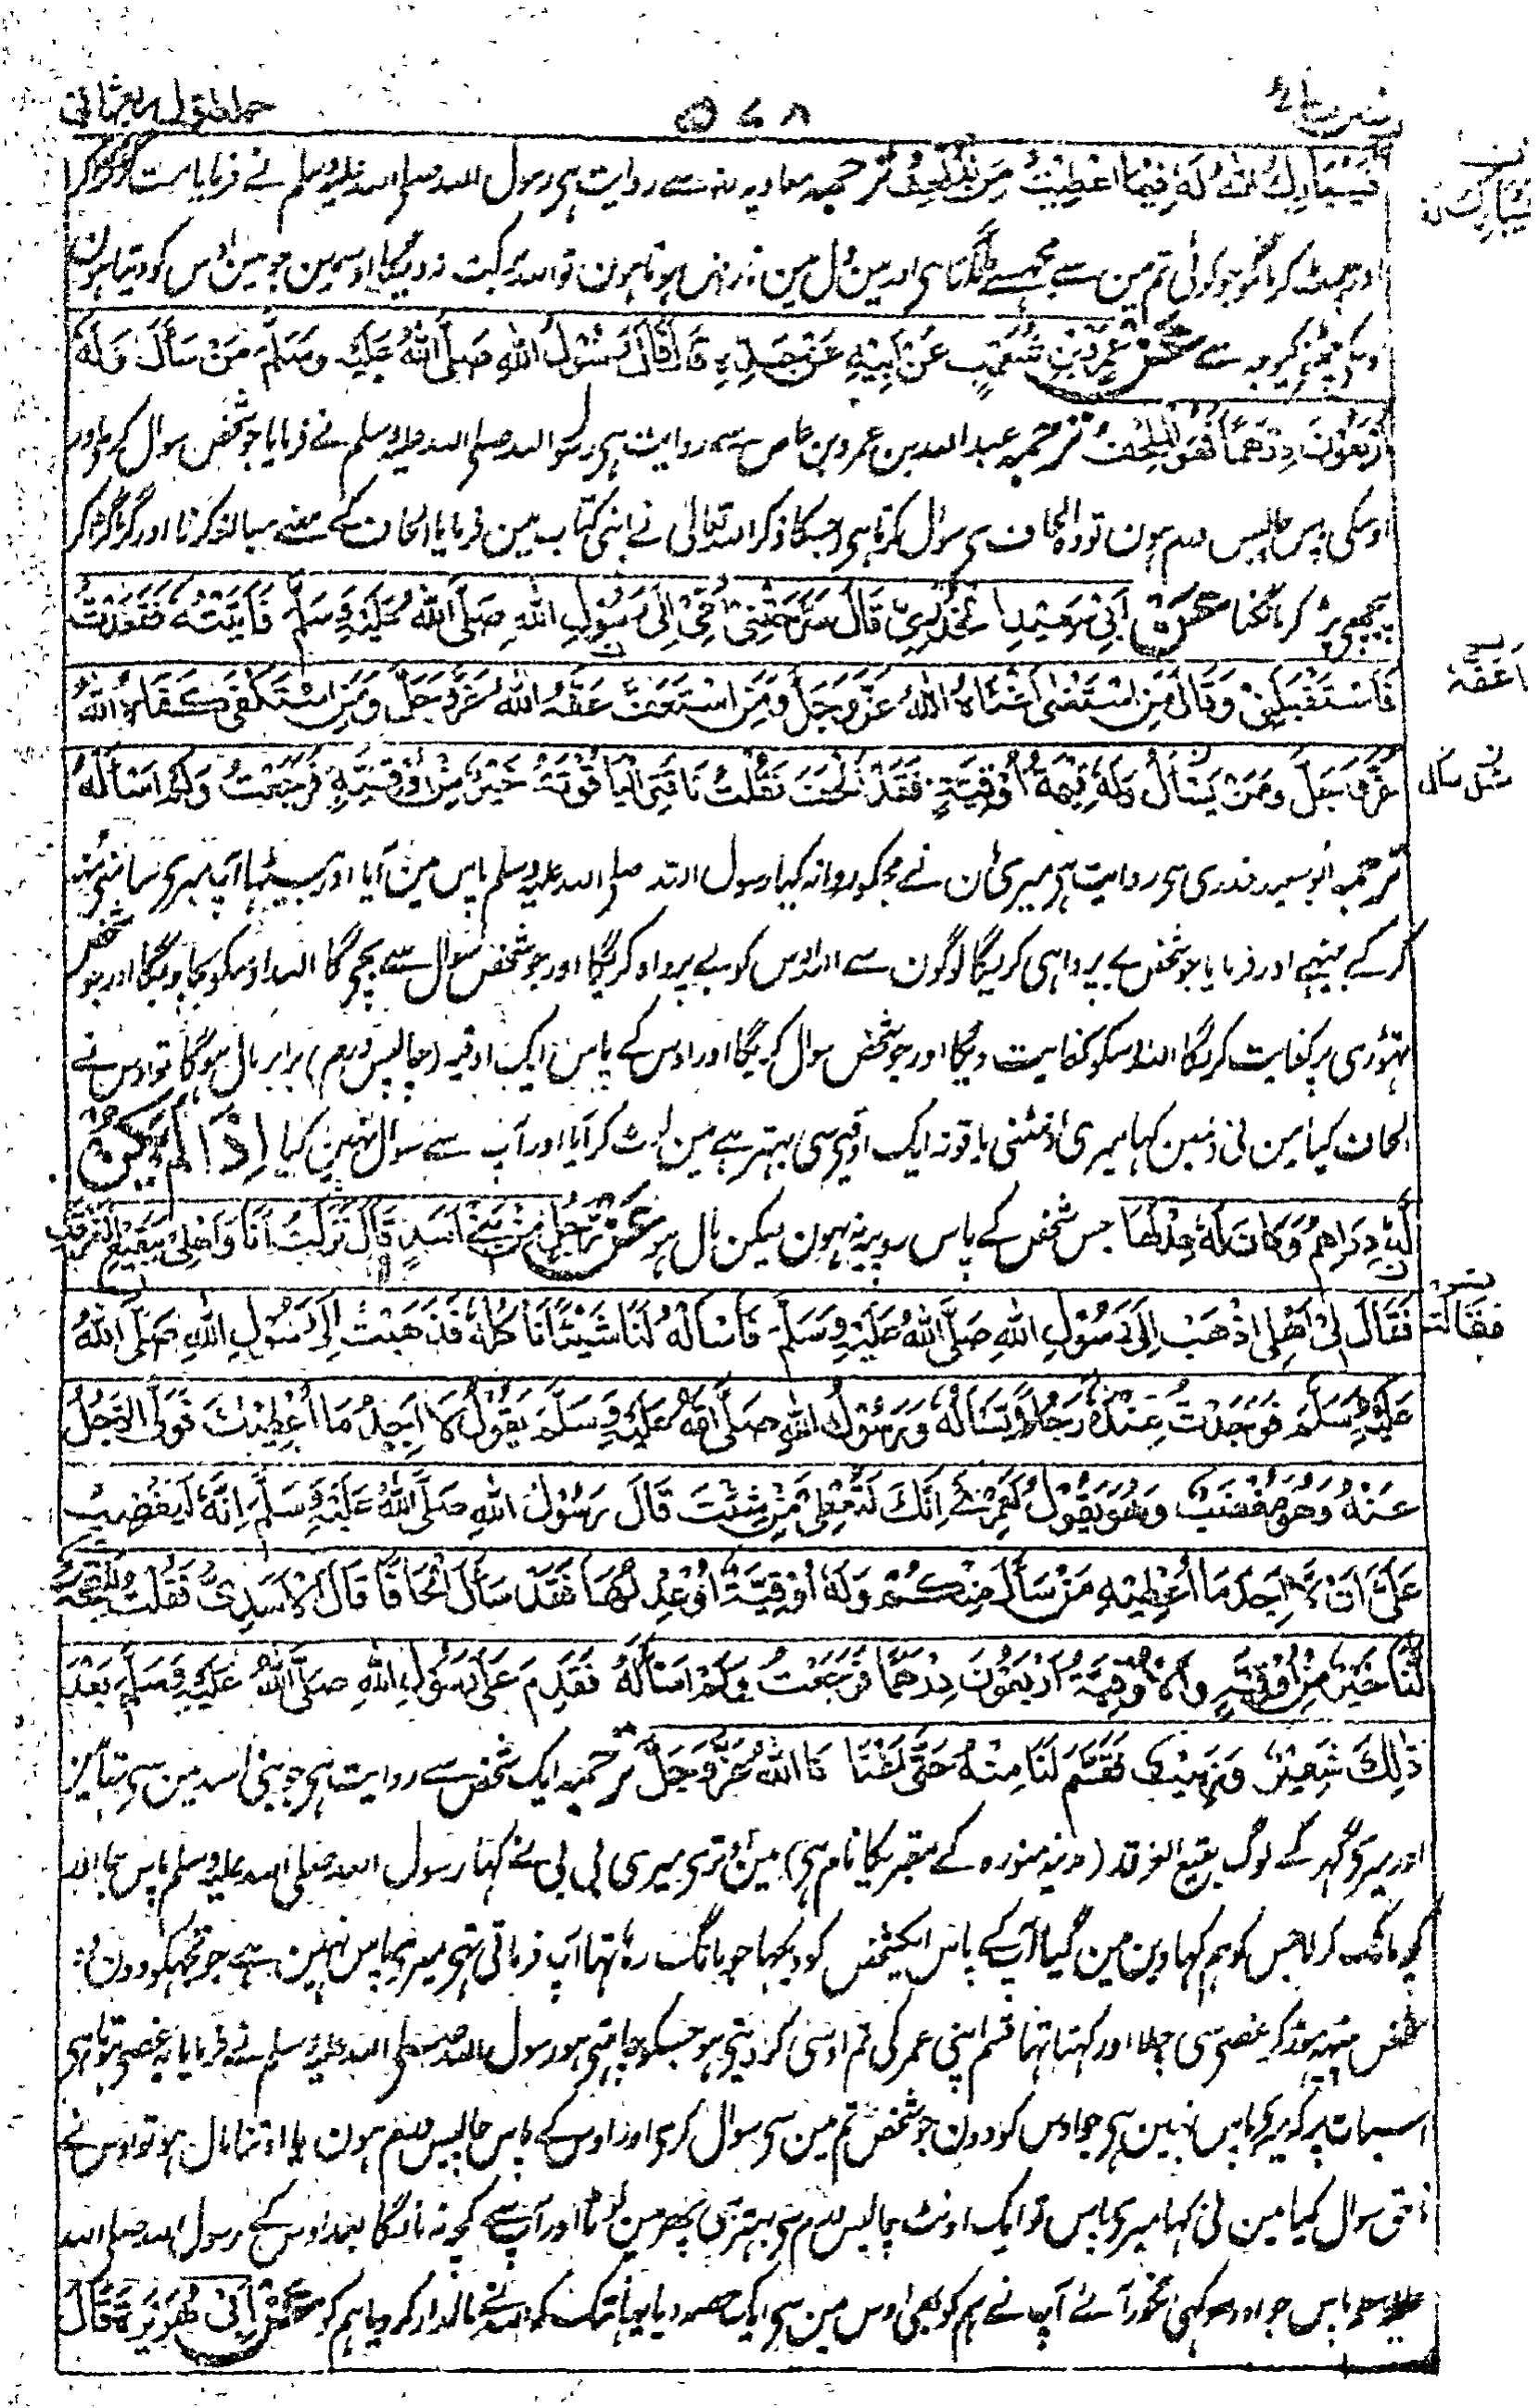 ۵۶۸
فَيُبَارِكُ اللهُ لَهُ فِيْمَا اَعْطَيْتُ مَنْ يُّلْحِفُ ترجمہ معاویہ رضہ سے روایت ہی رسول اللہ صلی اللہ علیہ وسلم نے فرمایا مت گڑگڑا کر
اور چمٹ کر مانگو جو کوئی تم مین سے مجھسے مانگتا ہی اور مین دل مین ناراض ہوتا ہون تو اللہ برکت نہ دیگا اوسمین جو مین اوس کو دیتا ہون
کیوجہ سے عَنْ عَمْرِو بْنِ شُعَيْبٍ عَنْ اَبِيْهِ عَنْ جَدِّهِ قَالَ قَالَ رَسُوْلُ اللهِ صَلَّى اللهُ عَلَيْهِ وَسَلَّمَ مَنْ سَأَلَ وَلَهُ
اَرْبَعُوْنَ دِرْهَمًا فَهُوَ الْمُلْحِفُ ترجمہ عبد اللہ بن عمرو بن عاص سے روایت ہی رسول اللہ صلی اللہ علیہ وسلم نے فرمایا جو شخص سوال کرے اور
اوسکی پاس چالیس درم ہون تو وہ الحاف سی سوال کرتا ہی جسکا ذکر اللہ تعالی نے اپنی کتاب مین فرمایا الحاف کے معنے مبالغہ کرنا اور گڑگڑا کر
پیچھی پڑ کر مانگنا عَنْ اَبِيْ سَعِيْدٍ الْخُدْرِيِّ قَالَ سَرَّحَتْنِيْ اُمِّيْ اِلَى رَسُوْلِ اللهِ صَلَّى اللهُ عَلَيْهِ وَسَلَّمَ فَاَتَيْتُهُ فَقَعَدْتُ
فَاسْتَقْبَلَنِيْ وَقَالَ مَنِ اسْتَغْنَى اَغْنَاهُ اللهُ عَزَّ وَجَلَّ وَمَنِ اسْتَعَفَّ عَفَّهُ اللهُ عَزَّ وَجَلَّ وَمَنِ اسْتَكْفَى كَفَاهُ اللهُ
اَعَفَّهُ
عَزَّ وَجَلَّ وَمَنْ يَسْأَلُ وَلَهُ قِيْمَةُ اُوْقِيَّةٍ فَقَدْ اَلْحَفَ فَقُلْتُ نَاقَتِي الْيَاقُوْتَةُ خَيْرٌ مِنْ اُوْقِيَّةٍ فَرَجَعْتُ وَلَمْ اَسْأَلْهُ
ترجمہ ابو سعید خدری سی روایت ہی میری مان نے مجکو روانہ کیا رسول اللہ صلی اللہ علیہ وسلم پاس مین آیا اور بیٹھا آپ میری سامنی منہ
کر کے بیٹھے اور فرمایا جو شخص بے پرواہی کریگا لوگون سے اللہ اوس کو بے پرواہ کریگا اور جو شخص سوال سے بچیگا اللہ اوسکو بچاویگا اور جو شخص
تھوڑی پر کفایت کریگا اللہ اوسکو کفایت دیگا اور جو شخص سوال کریگا اور اوس کے پاس ایک اوقیہ (چالیس درہم) برابر مال ہوگا تو اوس نے
الحاف کیا مین نی کہا میری اونٹنی یاقوتہ ایک اوقیہ سی بہتر ہے مین لوٹ کر آیا اور آپ سے سوال نہین کیا اِذَا لَمْ يَكُنْ
لَّهُ دَرَاهِمُ وَكَانَ لَهُ عِدْلُهَا جس شخص کے پاس روپیہ نہ ہون لیکن مال ہو عَنْ رَجُلٍ مِنْ بَنِيْ اَسَدٍ قَالَ نَزَلْتُ اَنَا وَاَهْلِيْ بِبَقِيْعِ الْغَرْقَدِ
فَقَالَ لِيْ اَهْلِيْ اذْهَبْ اِلَى رَسُوْلِ اللهِ صَلَّى اللهُ عَلَيْهِ وَسَلَّمَ فَاسْأَلْهُ لَنَا شَيْئًا نَأْكُلُهُ فَذَهَبْتُ اِلَى رَسُوْلِ اللهِ صَلَّى اللهُ
فَقَالَتْ
عَلَيْهِ وَسَلَّمَ فَوَجَدْتُ عِنْدَهُ رَجُلًا يَّسْأَلُهُ وَرَسُوْلُ اللهِ صَلَّى اللهُ عَلَيْهِ وَسَلَّمَ يَقُوْلُ لَا اَجِدُ مَا اُعْطِيْكَ فَوَلَّى الرَّجُلُ
عَنْهُ وَهُوَ مُغْضَبٌ وَهُوَ يَقُوْلُ لَعَمْرِيْ اِنَّكَ لَتُعْطِيْ مَنْ شِئْتَ قَالَ رَسُوْلُ اللهِ صَلَّى اللهُ عَلَيْهِ وَسَلَّمَ اِنَّهُ لَيَغْضَبُ
عَلَيَّ اَنْ لَّا اَجِدَ مَا اُعْطِيْهِ مَنْ سَأَلَ مِنْكُمْ وَلَهُ اُوْقِيَّةٌ اَوْ عِدْلُهَا فَقَدْ سَأَلَ اِلْحَافًا قَالَ الْاَسَدِيُّ فَقُلْتُ لَلَقْحَةٌ
لَّنَا خَيْرٌ مِنْ اُوْقِيَّةٍ وَالْاُوْقِيَّةُ اَرْبَعُوْنَ دِرْهَمًا فَرَجَعْتُ وَلَمْ اَسْأَلْهُ فَقَدِمَ عَلَى رَسُوْلِ اللهِ صَلَّى اللهُ عَلَيْهِ وَسَلَّمَ بَعْدَ
ذٰلِكَ شَعِيْرٌ وَزَبِيْبٌ فَقَسَمَ لَنَا مِنْهُ حَتَّى اَغْنَانَا اللهُ عَزَّ وَجَلَّ ترجمہ ایک شخص سے روایت ہی جو بنی اسد مین سی تھا مین
اور میری گھر کے لوگ بقیع الغرقد (مدینہ منورہ کے مقبریکا نام ہی) مین اوتری میری بی بی نے کہا رسول اللہ صلی اللہ علیہ وسلم پاس جا اور
کچھ مانگ کر لا جس کو ہم کہاوین مین گیا آپ کے پاس ایکشخص کو دیکھا جو مانگ رہا تھا آپ فرماتی تھی میری پاس نہین ہے جو تجھکو دون
شخص منہ موڑ کر غصی سی چلا اور کہتا تھا قسم اپنی عمر کی تم اوسی کو دیتی ہو جسکو چاہتی ہو رسول اللہ صلی اللہ علیہ وسلم نے فرمایا یہ غصی ہوتا ہی
اسبات پر کہ میری پاس نہین ہی جو اوس کو دون جو شخص تم مین سی سوال کری اور اوس کے پاس چالیس درم ہون یا اوتنا مال ہو تو اوس نے
ناحق سوال کیا مین نی کہا میری پاس تو ایک اونٹ چالیس درم سی بہتر ہی پھر مین لوٹا اور آپ سے کچھ نہ مانگا بعد اوس کے رسول اللہ صلی اللہ
علیہ وسلم پاس جو اور سوکھی انگور آئے آپ نے ہم کو بھی اوس مین سی ایک حصہ دیا یہانتک کہ اللہ نے مالدار کر دیا ہم کو عَنْ اَبِيْ هُرَيْرَةَ قَالَ